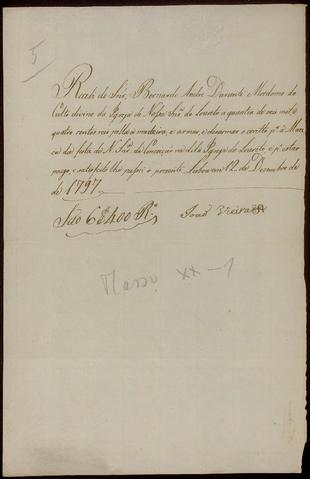 5
Recebi do Snr. Bernardo Andre Durante Mordomo do
Culto divino da Igreja de Nossa Snra. do Loreto a quantia de seis mil e
quatro centos reis pella madeira, e armar, e desarmar o coretto pa. a Muzi
ca da festa de N. Snra. da Conceição na dita Igreja do Loretto e p. estar
pago, e satisfeito lhe passei o prezente Lisboa em 12 de Dezembro de
de 1797
São 6$400 Rs.
João Vieira
Masso XX-1